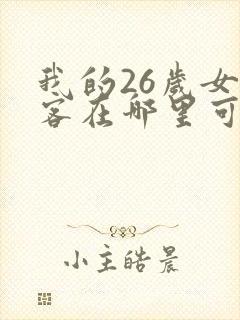 我的26岁女
客在哪里可
小主皓晨